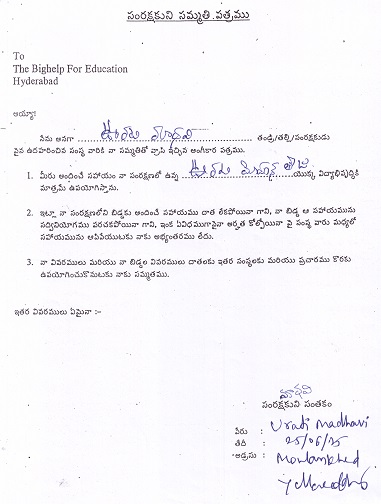 సంరక్షకుని సమ్మతి పత్రము
To
The Bighelp For Education
Hyderabad
అయ్యా:
నేను అనగా ఊరడి మాధవి తండ్రి/తల్లి/సంరక్షకుడు
పైన ఉదహరించిన సంస్థ వారికి నా సమ్మతితో వ్రాసి ఇచ్చిన అంగీకార పత్రము.
1. మీరు అందించే సహాయం నా సంరక్షణలో ఉన్న ఊరడి యొక్క విద్యాభివృద్ధికి
మాత్రమే ఉపయోగిస్తాను.
2. ఇట్లా నా సంరక్షణలోని బిడ్డకు అందించే సహాయము దాత లేకపోయినా గాని, నా బిడ్డ ఆ సహాయమును
సద్వినియోగము పరచకపోయినా గాని, ఇంక ఏవిధముగానైనా అర్హత కోల్పోయినా పై సంస్థ వారు మధ్యలో
సహాయమును ఆపివేయుటకు నాకు అభ్యంతరము లేదు.
3. నా వివరములు మరియు నా బిడ్డల వివరములు దాతలకు ఇతర సంస్థలకు మరియు ప్రచారము కొరకు
ఉపయోగించుకొనుటకు నాకు సమ్మతము.
ఇతర వివరములు ఏమైనా :-
మాధవి
సంరక్షకుని సంతకం
పేరు : Uradi madhavi
తేదీ : 25/06/25
అడ్రసు :